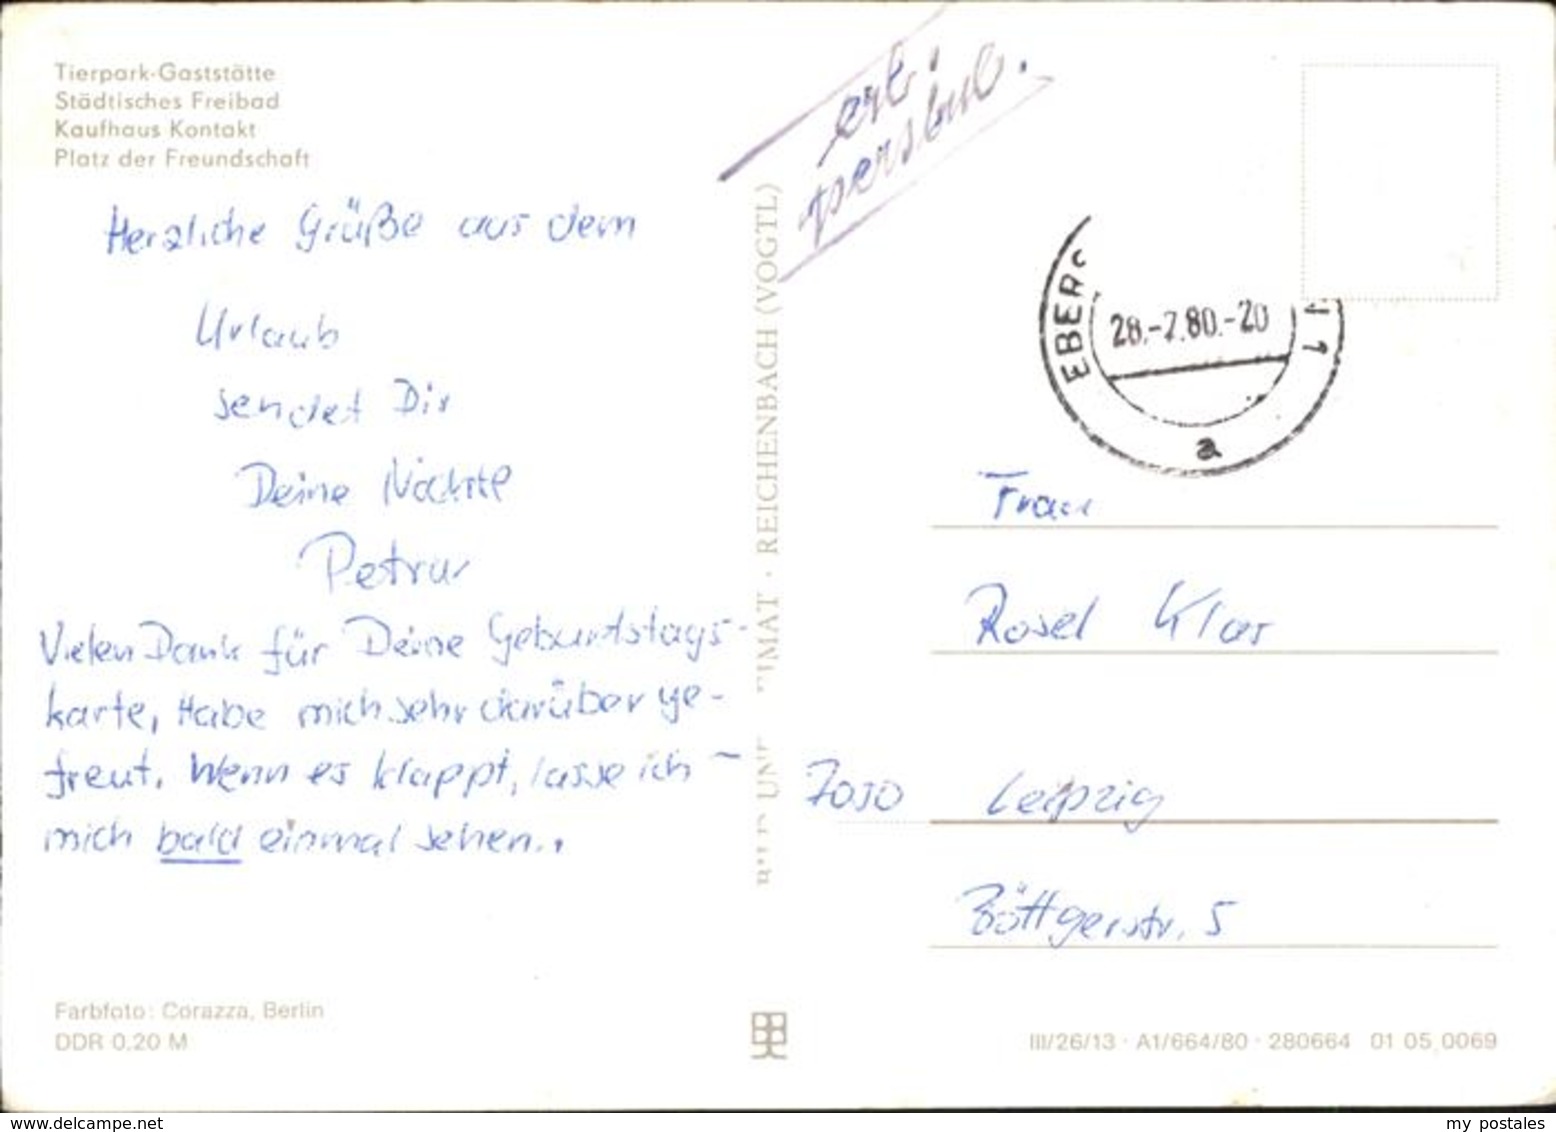 Tierpark-Gaststätte
Städtisches Freibad
Kaufhaus Kontakt
Platz der Freundschaft
Herzliche Grüße aus dem
Urlaub
sendet Dir
Deine Nichte
Petra
Vielen Dank für Deine Geburtstags-
karte, Habe mich sehr darüber ge-
freut. Wenn es klappt, lasse ich
mich bald einmal sehen.
Farbfoto: Corazza, Berlin
DDR 0,20 M
REICHENBACH (VOGTL)
erl.
EBERS
28.-7.80.-20
1
a
Frau
Rosel Klar
7050 Leipzig
Böttgerstr. 5
III/26/13 · A1/664/80 · 280664 01 05 0069
delcampe.net
my_postales